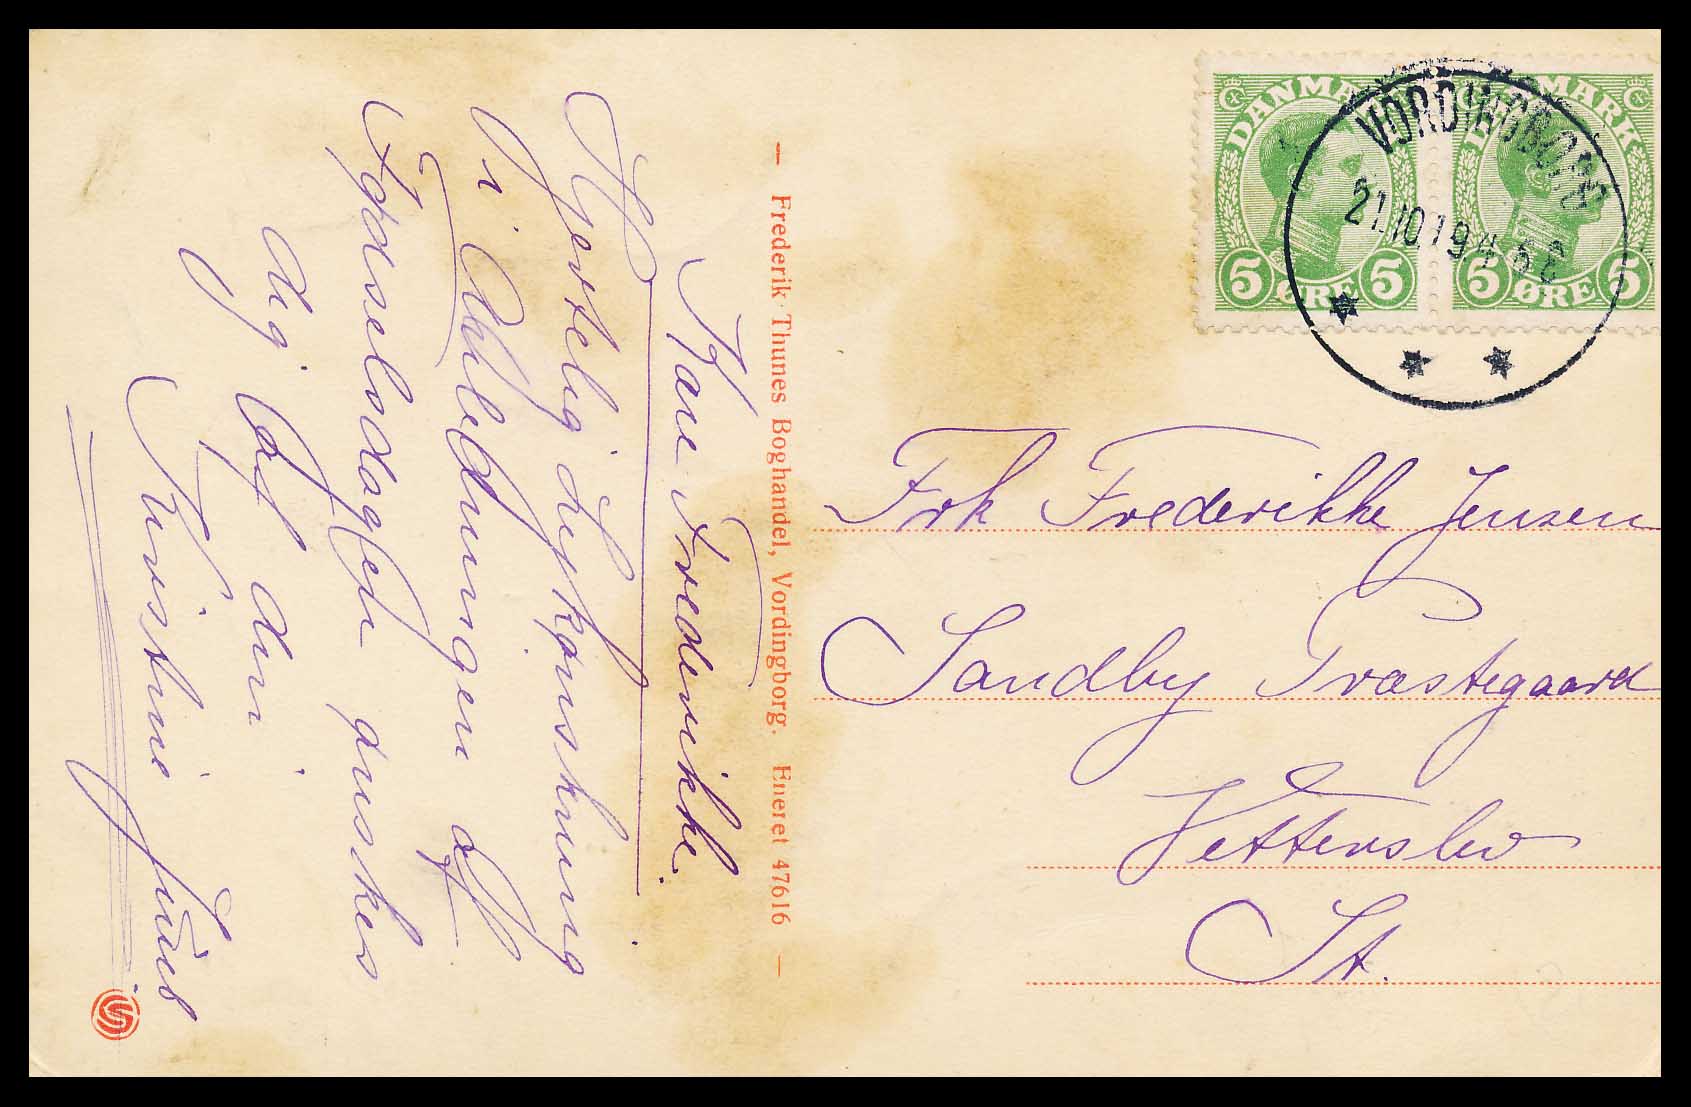 Kære Frederikke.
Hjertelig Lykønskning
i Anledningen af
Fødselsdagen ønskes
dig af din
Kirstine Juul
— Frederik Thunes Boghandel, Vordingborg. Eneret 47616 —
DANMARK
5 ØRE 5
DANMARK
5 ØRE 5
VORDINGBORG
21.10.19
Frk Frederikke Jensen
Sandby Præstegaard
Hetterslev
St.